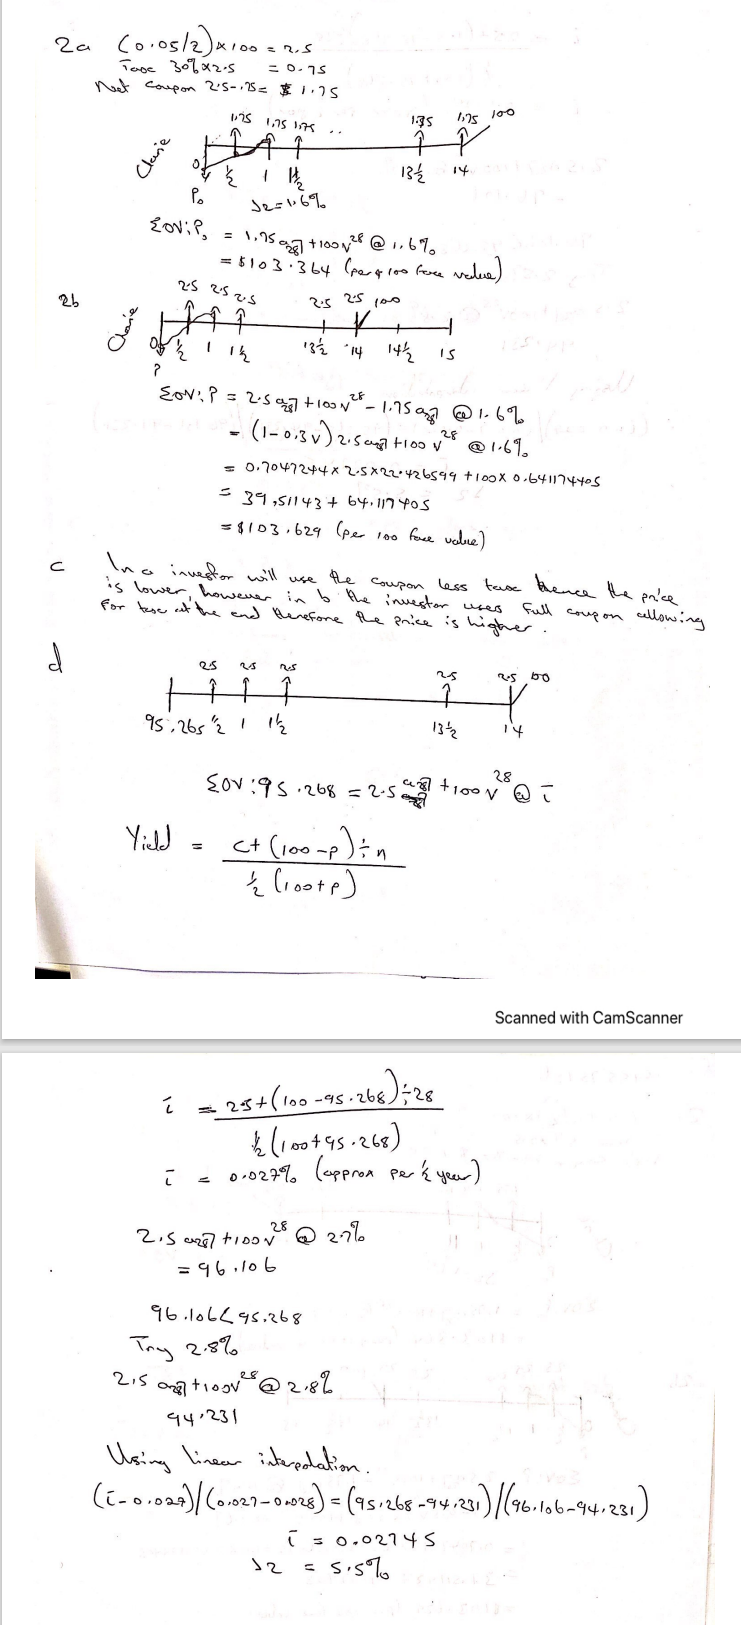 2a (0.05/2)x100 = 2.5
Taxe 30% x2.5 = 0.75
Net Coupon 2.5-.75= $ 1.75
1.75 1.75 1.75 .. 1.75 1.75 100
0 ½ 1 1½ 13½ 14
P₀ J2=1.6%
ΣOV: P₀ = 1.75 a28⌉ +100 v^28 @ 1.6%
= $103.364 (per $100 face value)
2b 2.5 2.5 2.5 2.5 2.5 100
0 ½ 1 1½ 13½ 14 14½ 15
P
ΣOV: P = 2.5 a28⌉ +100v^28 - 1.75 a28⌉ @ 1.6%
= (1-0.3v) 2.5 a28⌉ +100 v^28 @ 1.6%
= 0.7047244 x 2.5 x 22.426599 + 100 x 0.641174405
= 39.51143 + 64.117405
= $103.629 (per 100 face value)
c In a investor will use the coupon less taxe thence the price
is lower, however in b the investor uses full coupon allowing
for taxe at the end therefore the price is higher.
d
2.5 2.5 2.5 2.5 2.5 100
95.265 ½ 1 1½ 13½ 14
ΣOV: 95.268 = 2.5 a28⌉ +100 v^28 @ i
Yield = c+(100-p)÷n
½(100+p)
Scanned with CamScanner
i = 2.5+(100-95.268)÷28
½(100+95.268)
i = 0.027% (approx per ½ year)
2.5 a28⌉ +100v^28 @ 2.7%
= 96.106
96.106<95.268
Try 2.8%
2.5 a28⌉ +100v^28 @ 2.8%
94.231
Using linear interpolation.
(i-0.027)/(0.027-0.028) = (95.268-94.231)/(96.106-94.231)
i = 0.02745
J2 = 5.5%